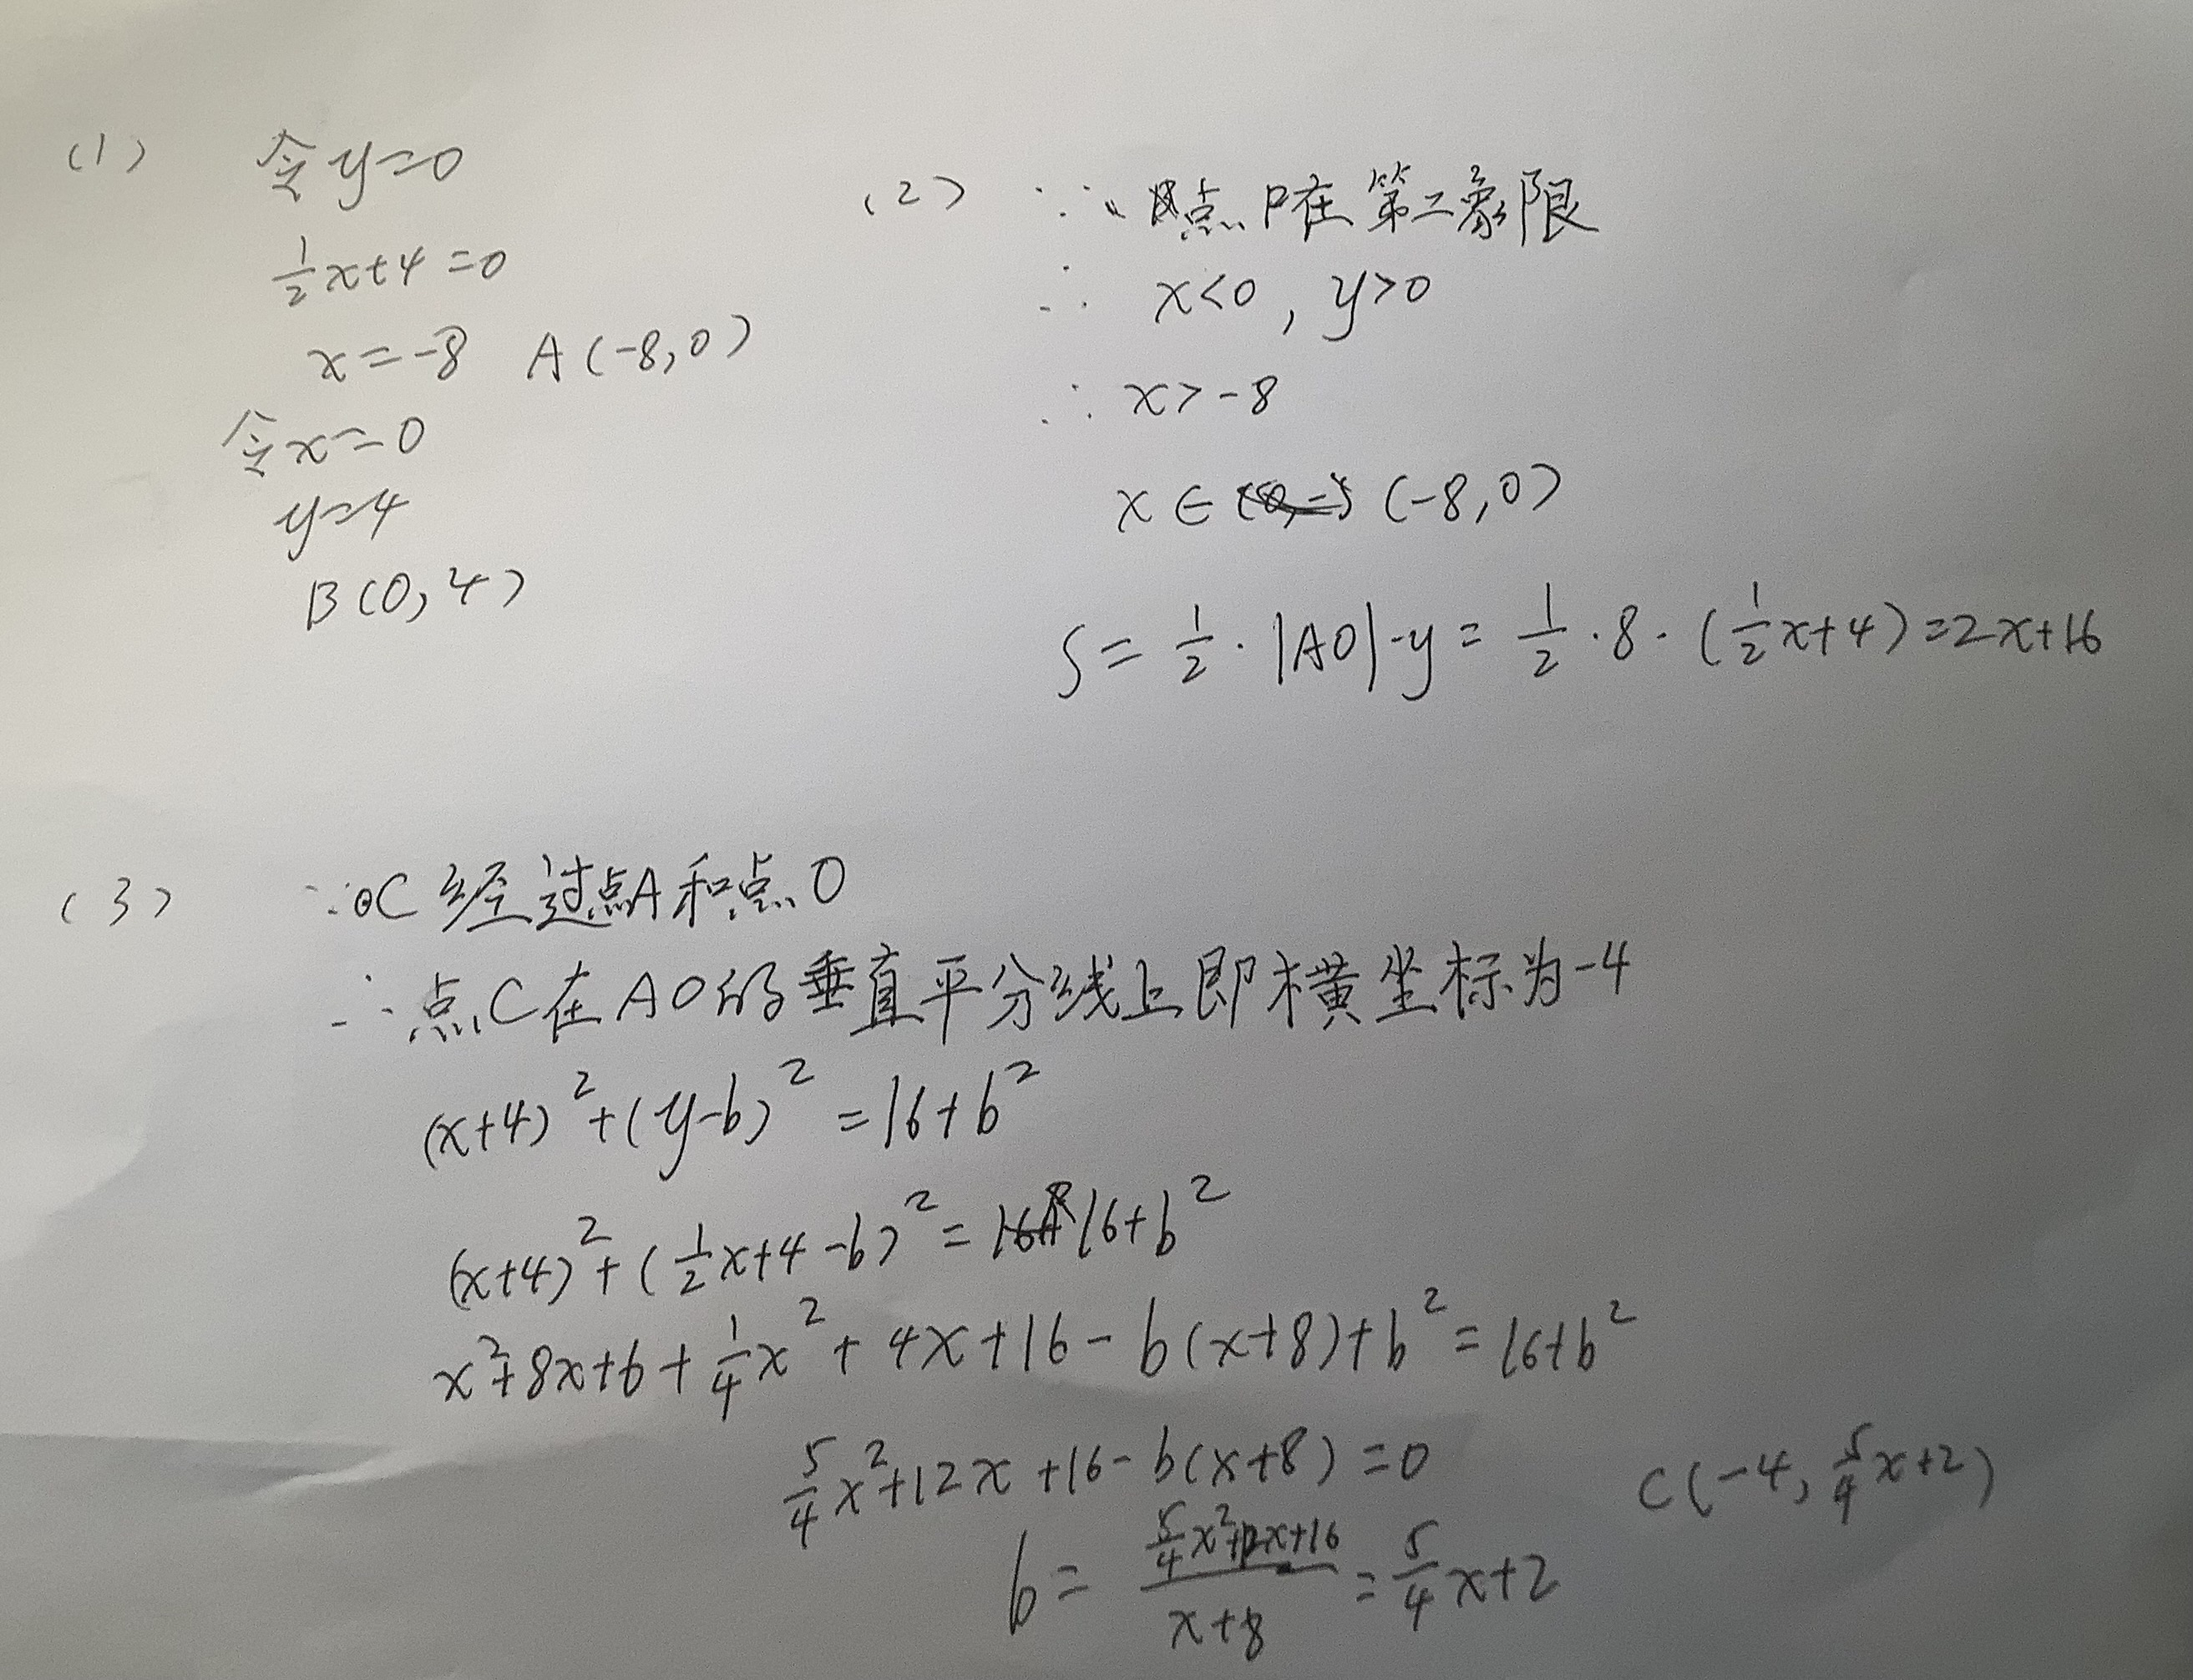 (1) 令y=0
½x+4=0
x=-8 A(-8,0)
令x=0
y=4
B(0,4)
(2) ∵点P在第二象限
∴ x<0,y>0
∴ x>-8
x∈(-8,0)
S=½·|AO|·y=½·8·(½x+4)=2x+16
(3) ∵⊙C经过点A和点O
∴点C在AO的垂直平分线上即横坐标为-4
(x+4)²+(y-b)²=16+b²
(x+4)²+(½x+4-b)²=16+b²
x²+8x+16+¼x²+4x+16-b(x+8)+b²=16+b²
5/4x²+12x+16-b(x+8)=0
b=(5/4x²+12x+16)/(x+8)=5/4x+2
C(-4,5/4x+2)